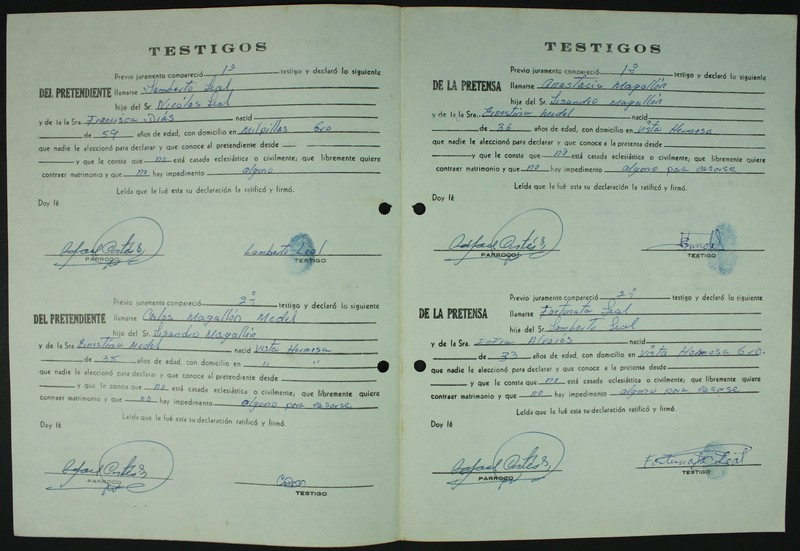 TESTIGOS
Previo juramento compareció 1º testigo y declaró lo siguiente
DEL PRETENDIENTE llamarse Lamberto Leal,
hijo del Sr. Nicolás Leal
y de la Sra. Francisca Días nacid
de 59 años de edad, con domicilio en Milpillas Gro
que nadie le aleccionó para declarar y que conoce al pretendiente desde
y que le consta que no está casada eclesiástica o civilmente; que libremente quiere
contraer matrimonio y que no hay impedimento alguno
Leída que le fué esta su declaración la ratificó y firmó.
Doy fé
Rafael Cortés
Lamberto Leal
PARROCO
TESTIGO
Previo juramento compareció 2º testigo y declaró lo siguiente
DEL PRETENDIENTE llamarse Carlos Magallón Medel
hijo del Sr. Lisandro Magallón
y de la Sra. Ernestina Medel nacid Vista Hermosa
de 35 años de edad, con domicilio en " "
que nadie le aleccionó para declarar y que conoce al pretendiente desde
y que le consta que no está casada eclesiástica o civilmente; que libremente quiere
contraer matrimonio y que no hay impedimento alguno para casarse
Leída que le fué esta su declaración la ratificó y firmó
Doy fé
Rafael Cortés
PARROCO
TESTIGO
TESTIGOS
Previo juramento compareció 1º testigo y declaró lo siguiente
DE LA PRETENSA llamarse Anastacia Magallón
hija del Sr. Lisandro Magallón
y de la Sra. Ernestina Medel nacid
de 36 años de edad, con domicilio en Vista Hermosa
que nadie le aleccionó para declarar y que conoce a la pretensa desde
y que le consta que no está casada eclesiástica o civilmente; que libremente quiere
contraer matrimonio y que no hay impedimento alguno para casarse
Leída que le fué esta su declaración la ratificó y firmó.
Doy fé
Rafael Cortés
PARROCO
TESTIGO
Previo juramento compareció 2º testigo y declaró lo siguiente
DE LA PRETENSA llamarse Fortunata Leal
hija del Sr. Lamberto Leal
y de la Sra. Alvares nacid
de 33 años de edad, con domicilio en Vista Hermosa Gro.
que nadie le aleccionó para declarar y que conoce a la pretensa desde
y que le consta que no está casada eclesiástica o civilmente; que libremente quiere
contraer matrimonio y que no hay impedimento alguno para casarse
Leída que le fué esta su declaración ratificó y firmó
Doy fé
Rafael Cortés
Fortunata Leal
PARROCO
TESTIGO